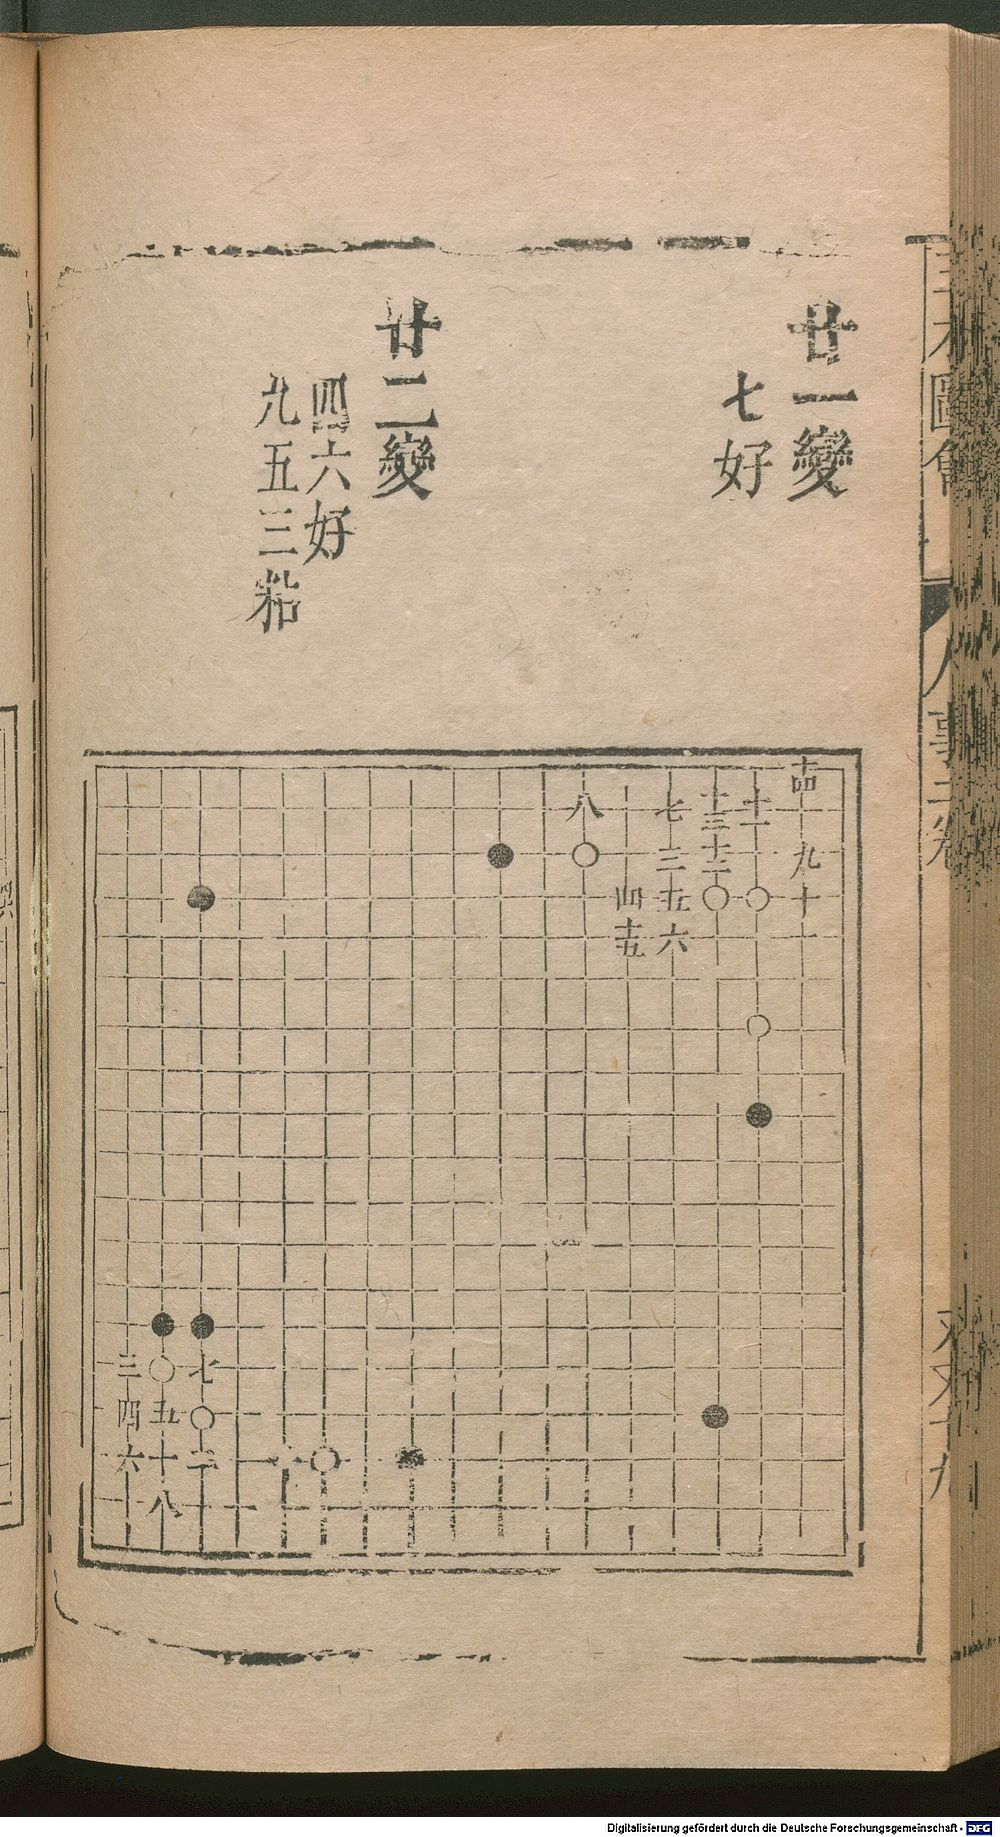 廿一變
七好
廿二變
四六好
九五三粘
十四
八 七 十三 十一
三 十二 九
四 五 十
十五 六 一
三 七
四 五
六 十 二 一
八
Digitalisierung gefördert durch die Deutsche Forschungsgemeinschaft - DFG